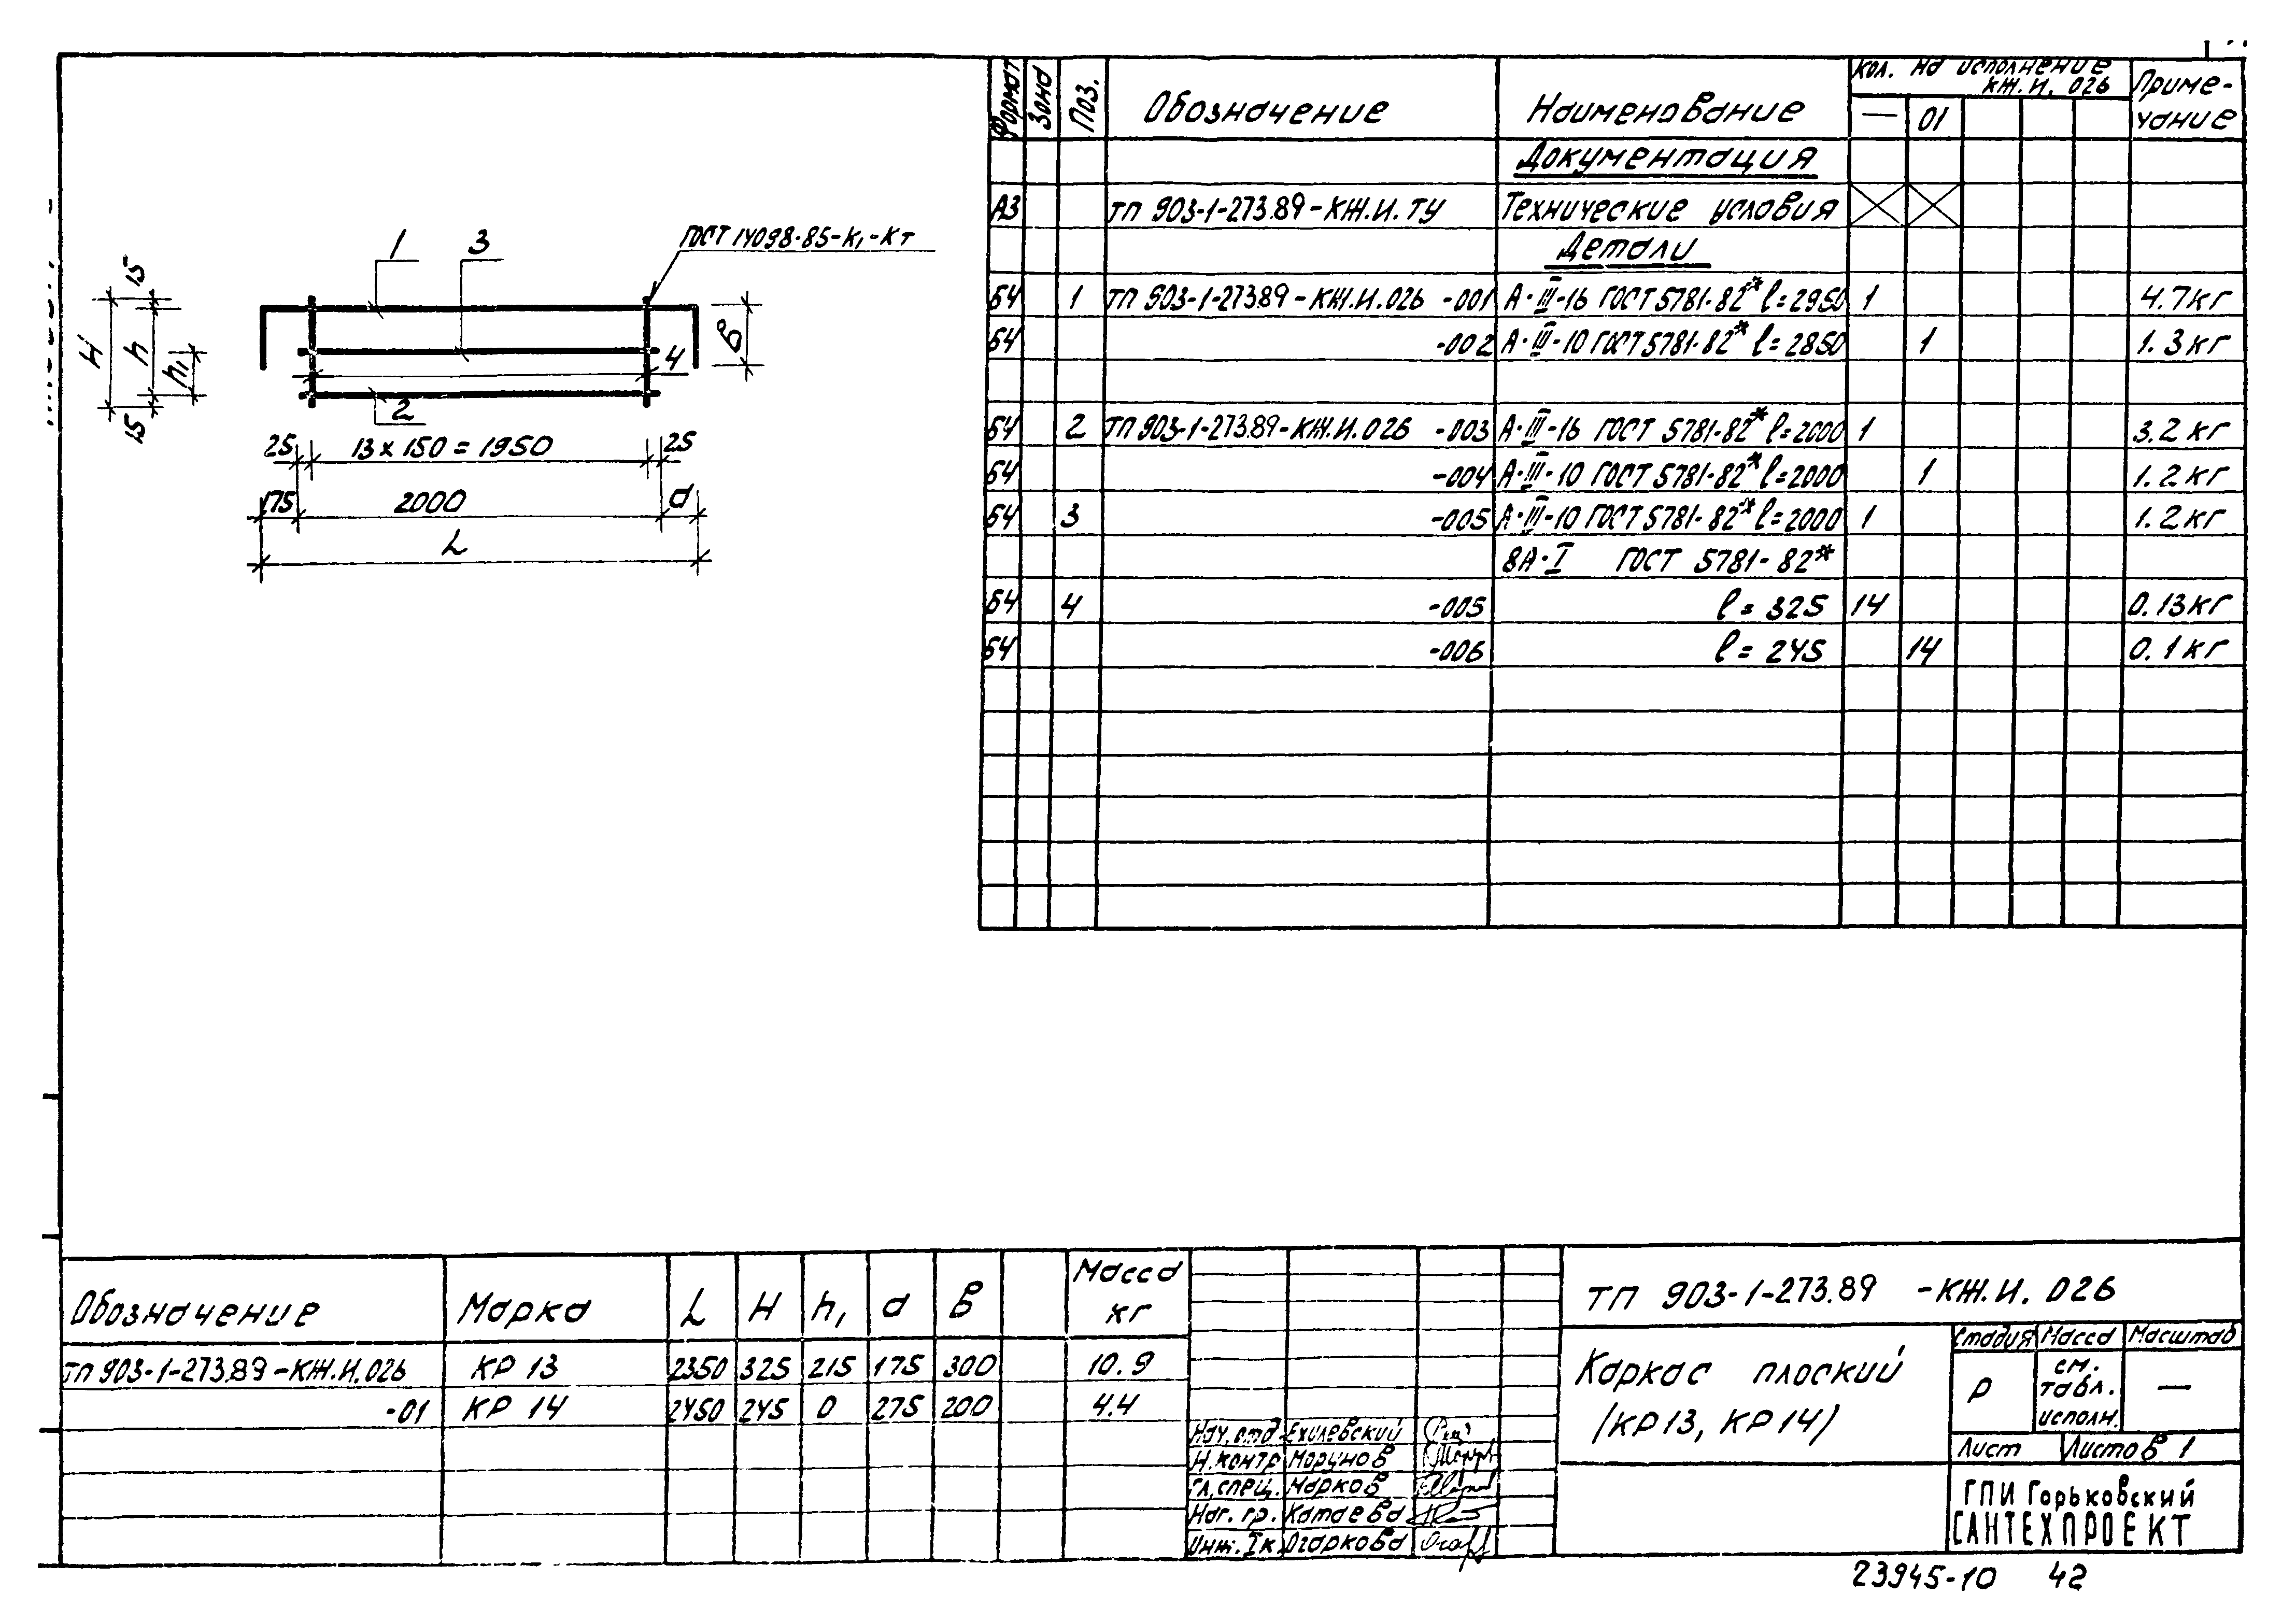 1 3 ГОСТ 14098-85-К₁-Кт
15
H h h₁ 4 В
15 2
25 13 x 150 = 1950 25
175 2000 а
L
Формат Зона Поз. Обозначение Наименование Кол. на исполнение КЖ.И. 026 Приме-
— 01 чание
Документация
А3 ТП 903-1-273.89-КЖ.И.ТУ Технические условия
Детали
Б4 1 ТП 903-1-273.89-КЖ.И.026 -001 А-III-16 ГОСТ 5781-82* l=2950 1 4.7кг
Б4 -002 А-III-10 ГОСТ 5781-82* l=2850 1 1.3кг
Б4 2 ТП 903-1-273.89-КЖ.И.026 -003 А-III-16 ГОСТ 5781-82* l=2000 1 3.2кг
Б4 -004 А-III-10 ГОСТ 5781-82* l=2000 1 1.2кг
Б4 3 -005 А-III-10 ГОСТ 5781-82* l=2000 1 1.2кг
8А-I ГОСТ 5781-82*
Б4 4 -005 l=325 14 0.13кг
Б4 -006 l=245 14 0.1кг
Обозначение Марка L H h₁ а В Масса кг
ТП 903-1-273.89-КЖ.И.026 КР 13 2350 325 215 175 300 10.9
-01 КР 14 2450 245 0 275 200 4.4
Нач.отд. Ехилевский
Н.контр Моруков
Гл.спец. Марков
Наг. гр. Катаева
Инж. Iк. Огаркова
ТП 903-1-273.89 -КЖ.И. 026
Каркас плоский
(КР13, КР14)
Стадия Масса Масштаб
Р см. табл. исполн. —
Лист Листов 1
ГПИ Горьковский
САНТЕХПРОЕКТ
23945-10 42